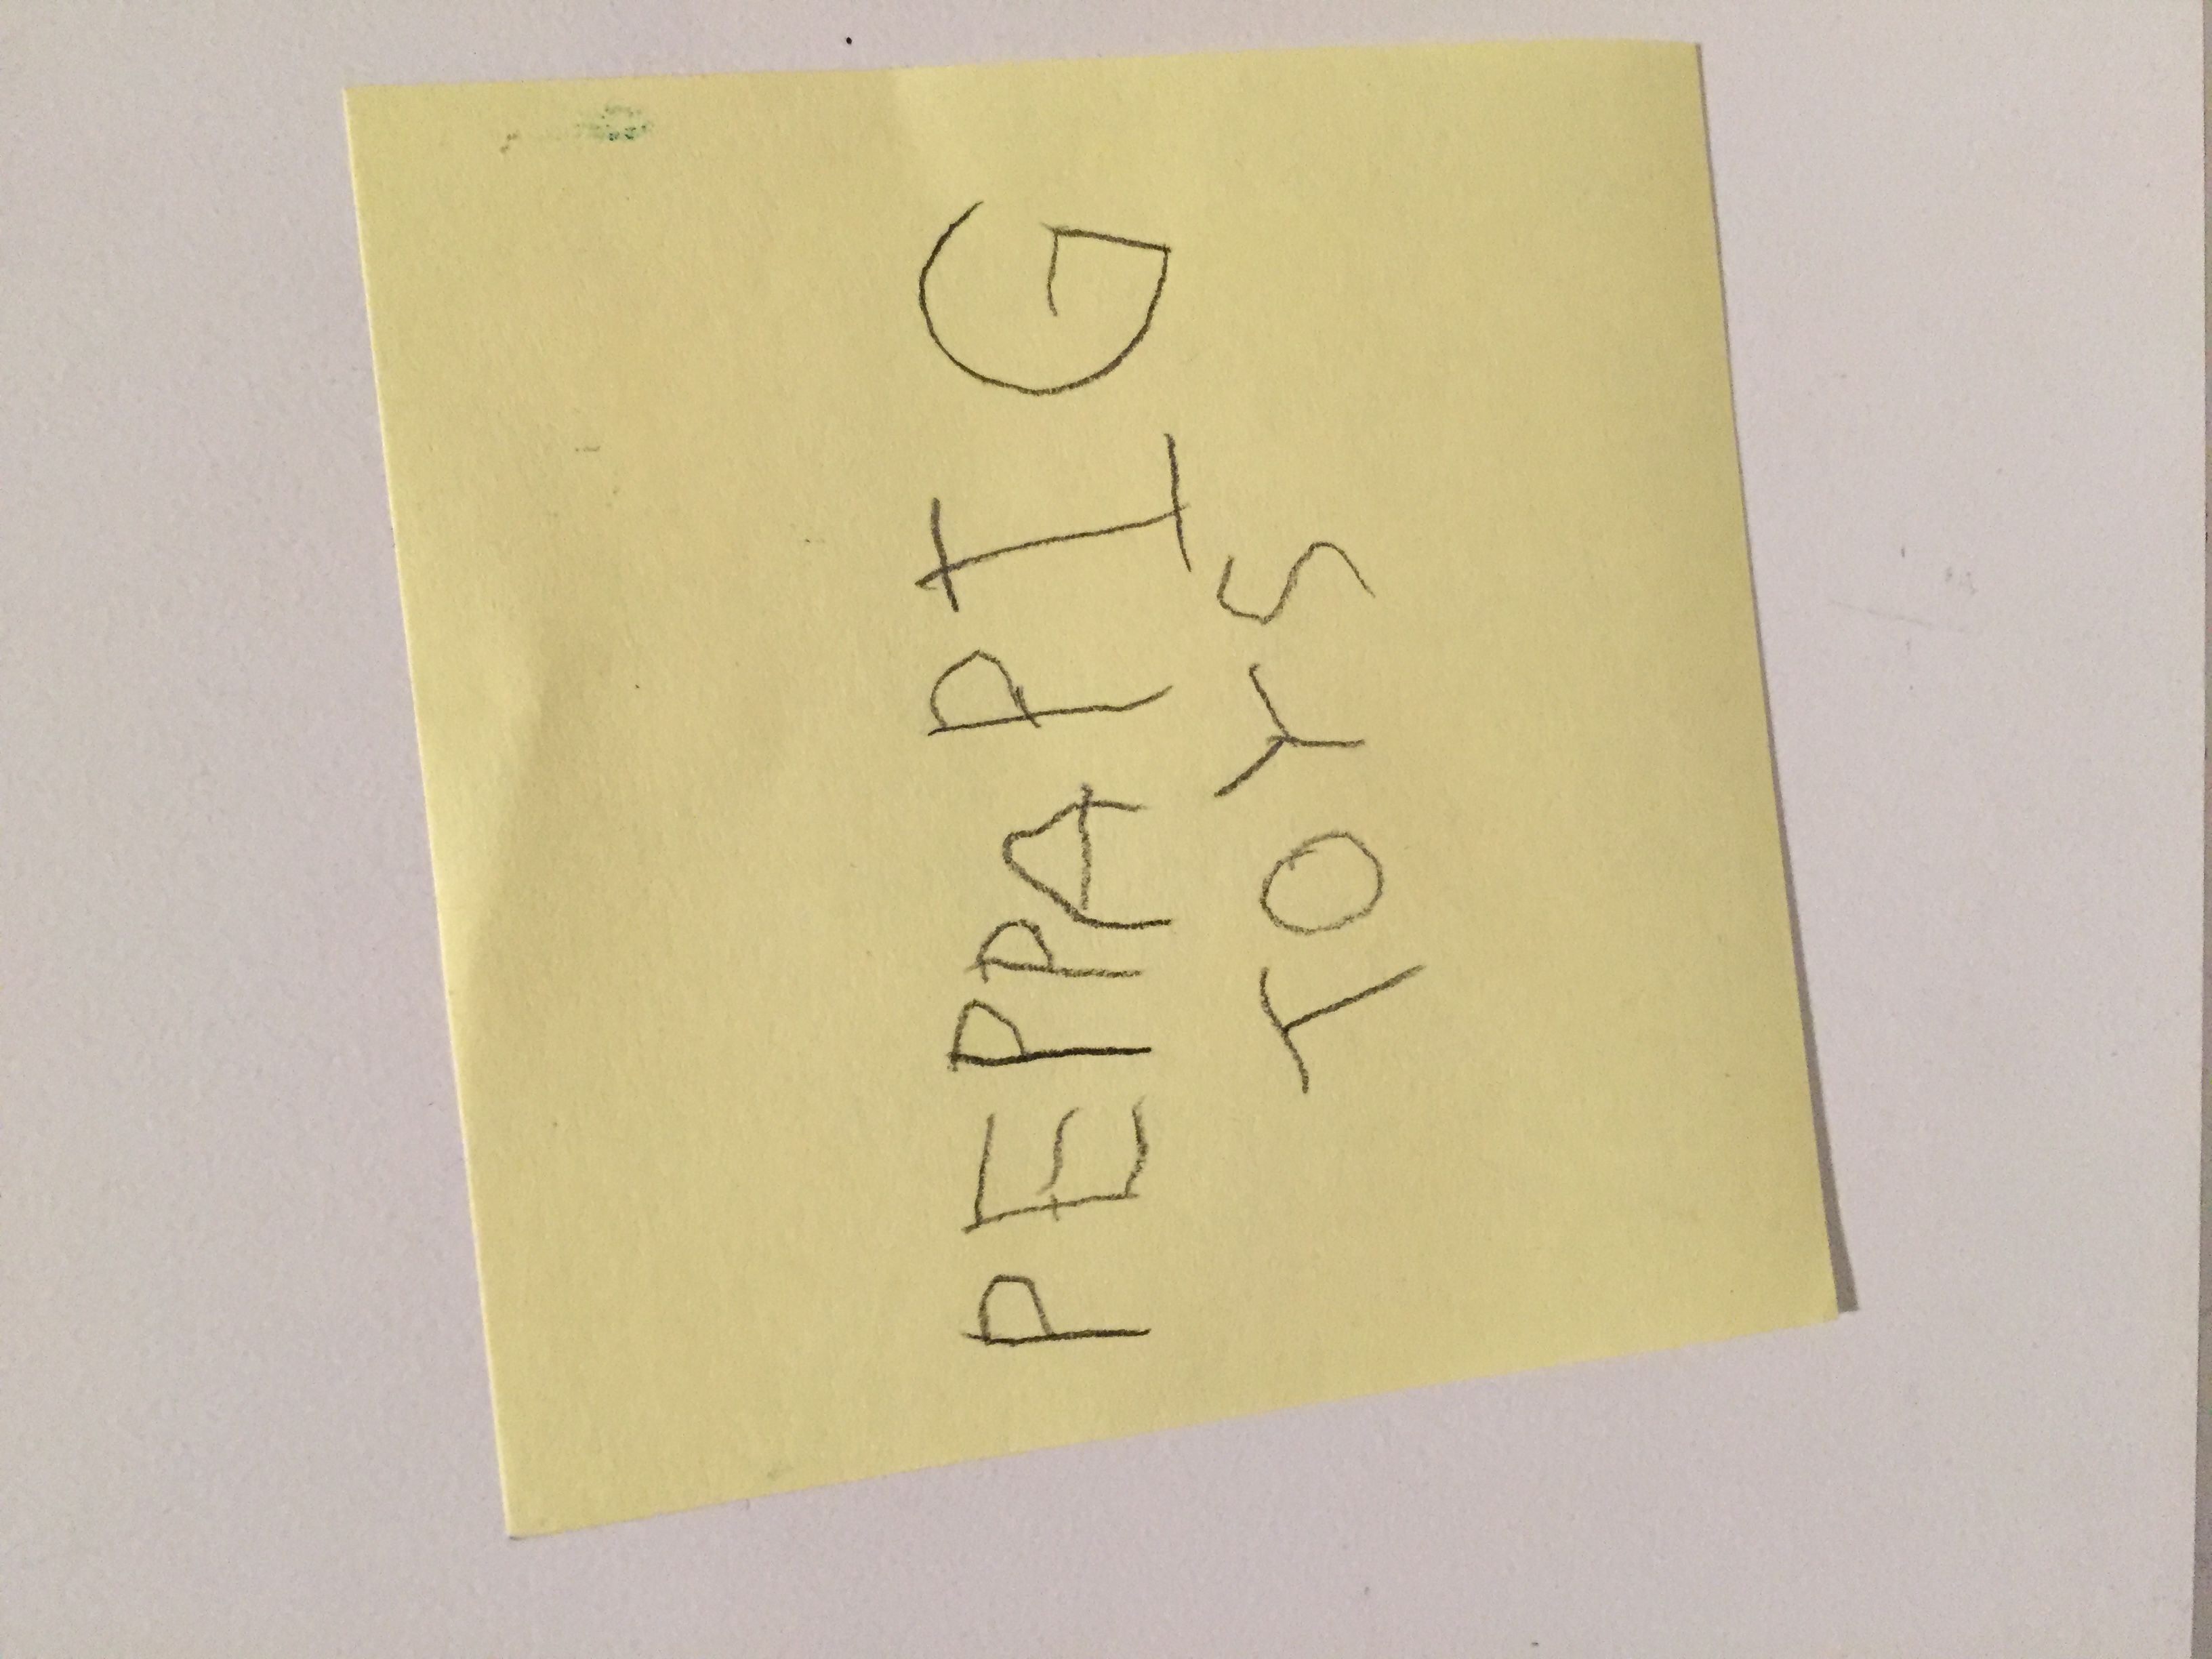 PEPPA PIG
TOYS